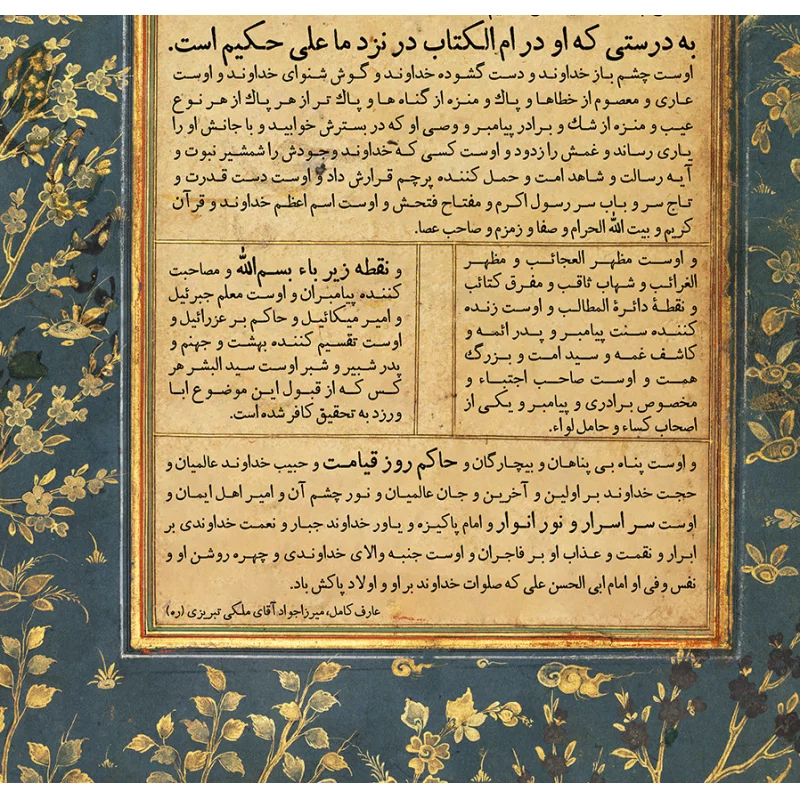 به درستی که او در ام الکتاب در نزد ما علی حکیم است.
اوست چشم باز خداوند و دست گشوده خداوند و گوش شنوای خداوند و اوست
عاری و معصوم از خطاها و پاک و منزه از گناه ها و پاک تر از هر پاک از هر نوع
عیب و منزه از شک و برادر پیامبر و وصی او که در بسترش خوابید و با جانش او را
یاری رساند و غمش را زدود و اوست کسی که خداوند وجودش را شمشیر نبوت و
آیه رسالت و شاهد امت و حمل کننده پرچم قرارش داد و اوست دست قدرت و
تاج سر و باب سر رسول اکرم و مفتاح فتحش و اوست اسم اعظم خداوند و قرآن
کریم و بیت الله الحرام و صفا و زمزم و صاحب عصا.
و اوست مظهر العجائب و مظهر
الغرائب و شهاب ثاقب و مفرق کتائب
و نقطهٔ دائرهٔ المطالب و اوست زنده
کننده سنت پیامبر و پدر ائمه و
کاشف غمه و سید امت و بزرگ
همت و اوست صاحب اجتباء و
مخصوص برادری و پیامبر و یکی از
اصحاب کساء و حامل لواء.
و نقطه زیر باء بسم الله و مصاحبت
کننده پیامبران و اوست معلم جبرئیل
و امیر میکائیل و حاکم بر عزرائیل و
اوست تقسیم کننده بهشت و جهنم و
پدر شبیر و شبر اوست سید البشر هر
کس که از قبول این موضوع ابا
ورزد به تحقیق کافر شده است.
و اوست پناه بی پناهان و بیچارگان و حاکم روز قیامت و حبیب خداوند عالمیان و
حجت خداوند بر اولین و آخرین و جان عالمیان و نور چشم آن و امیر اهل ایمان و
اوست سر اسرار و نور انوار و امام پاکیزه و یاور خداوند جبار و نعمت خداوندی بر
ابرار و نقمت و عذاب او بر فاجران و اوست جنبه والای خداوندی و چهره روشن او و
نفس وفی او امام ابی الحسن علی که صلوات خداوند بر او و اولاد پاکش باد.
عارف کامل، میرزاجواد آقای ملکی تبریزی (ره)